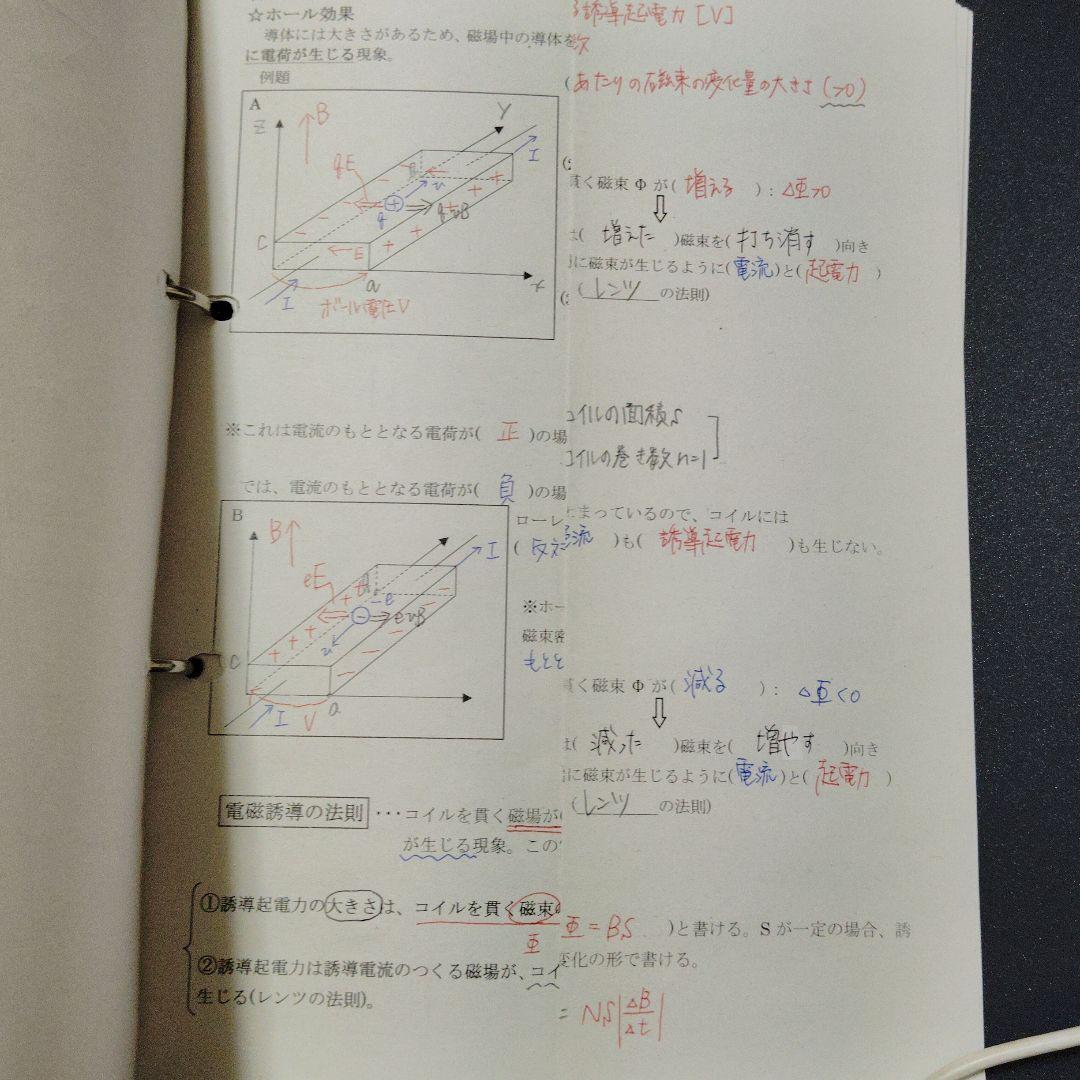 ☆ホール効果
導体には大きさがあるため、磁場中の導体を
に電荷が生じる現象。
例題
A
Z
B
y
I
qE
v
q
qvB
C
E
a
x
I
ホール電圧V
※これは電流のもととなる電荷が( 正 )の場
では、電流のもととなる電荷が( 負 )の場
B
B
I
eE
-e
evB
v
C
a
I
V
ローレ
( 反対
※ホー
磁束密
もとと
電磁誘導の法則 ・・・コイルを貫く磁場が(
が生じる現象。この
①誘導起電力の大きさは、コイルを貫く磁束
Φ
②誘導起電力は誘導電流のつくる磁場が、コイ
生じる(レンツの法則)。
誘導起電力 [V]
次
(あたりの磁束の変化量の大きさ (>0)
貫く磁束 Φ が( 増える ) : ΔΦ>0
は( 増えた )磁束を( 打ち消す )向き
に磁束が生じるように( 電流 )と( 起電力 )
( レンツ の法則)
コイルの面積S
コイルの巻き数 n=1
止まっているので、コイルには
流 )も( 誘導起電力 )も生じない。
貫く磁束 Φ が( 減る ) : ΔΦ<0
は( 減った )磁束を( 増やす )向き
に磁束が生じるように( 電流 )と( 起電力 )
( レンツ の法則)
Φ = BS )と書ける。S が一定の場合、誘
変化の形で書ける。
= NS|ΔB/Δt|